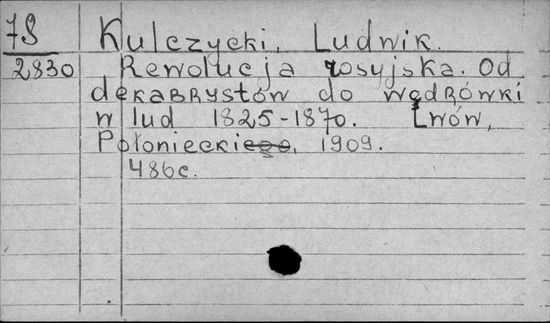 78 Kulczycki, Ludwik.
2830 Rewolucja rosyjska. Od
dekabrystów do wędrówki
w lud 1825-1870. Lwów,
Połonieckiego, 1909.
486c.